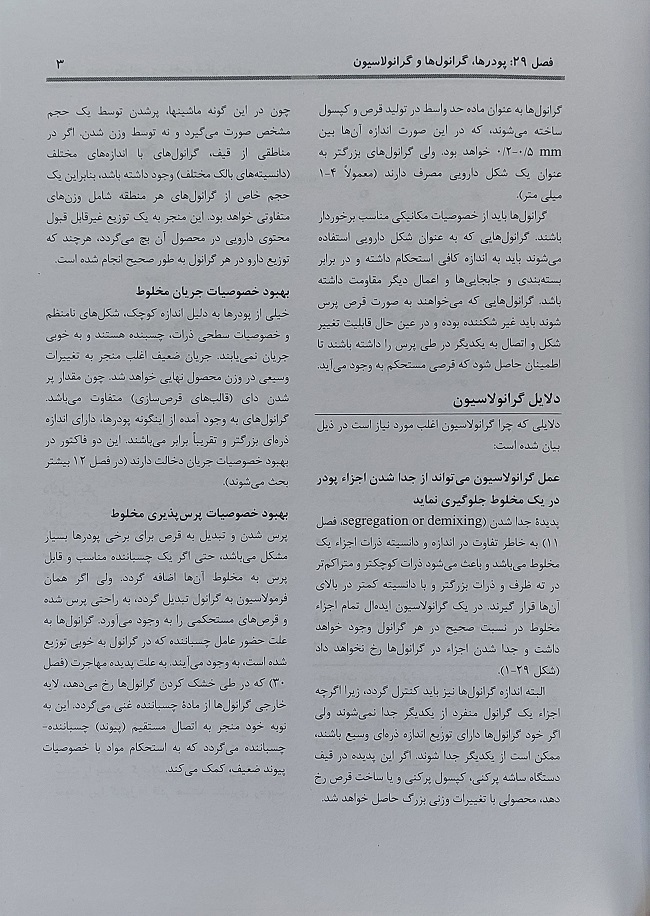 فصل ۲۹: پودرها، گرانول‌ها و گرانولاسیون
۳
گرانول‌ها به عنوان ماده حد واسط در تولید قرص و کپسول
ساخته می‌شوند، که در این صورت اندازه آن‌ها بین
۰/۲–۰/۵ mm خواهد بود. ولی گرانول‌های بزرگتر به
عنوان یک شکل دارویی مصرف دارند (معمولاً ۴–۱
میلی متر).
گرانول‌ها باید از خصوصیات مکانیکی مناسب برخوردار
باشند. گرانول‌هایی که به عنوان شکل دارویی استفاده
می‌شوند باید به اندازه کافی استحکام داشته و در برابر
بسته‌بندی و جابجایی‌ها و اعمال دیگر مقاومت داشته
باشد. گرانول‌هایی که می‌خواهند به صورت قرص پرس
شوند باید غیر شکننده بوده و در عین حال قابلیت تغییر
شکل و اتصال به یکدیگر در طی پرس را داشته باشند تا
اطمینان حاصل شود که قرصی مستحکم به وجود می‌آید.
دلایل گرانولاسیون
دلایلی که چرا گرانولاسیون اغلب مورد نیاز است در ذیل
بیان شده است:
عمل گرانولاسیون می‌تواند از جدا شدن اجزاء پودر
در یک مخلوط جلوگیری نماید
پدیدهٔ جدا شدن (segregation or demixing، فصل
۱۱) به خاطر تفاوت در اندازه و دانسیته ذرات اجزاء یک
مخلوط می‌باشد و باعث می‌شود ذرات کوچکتر و متراکم‌تر
در ته ظرف و ذرات بزرگتر و با دانسیته کمتر در بالای
آن‌ها قرار گیرند. در یک گرانولاسیون ایده‌ال تمام اجزاء
مخلوط در نسبت صحیح در هر گرانول وجود خواهد
داشت و جدا شدن اجزاء در گرانول‌ها رخ نخواهد داد
(شکل ۲۹–۱).
البته اندازه گرانول‌ها نیز باید کنترل گردد، زیرا اگرچه
اجزاء یک گرانول منفرد از یکدیگر جدا نمی‌شوند ولی
اگر خود گرانول‌ها دارای توزیع اندازه ذره‌ای وسیع باشند،
ممکن است از یکدیگر جدا شوند. اگر این پدیده در قیف
دستگاه ساشه پرکنی، کپسول پرکنی و یا ساخت قرص رخ
دهد، محصولی با تغییرات وزنی بزرگ حاصل خواهد شد.
چون در این گونه ماشینها، پرشدن توسط یک حجم
مشخص صورت می‌گیرد و نه توسط وزن شدن. اگر در
مناطقی از قیف، گرانول‌های با اندازه‌های مختلف
(دانسیته‌های بالک مختلف) وجود داشته باشد، بنابراین یک
حجم خاص از گرانول‌های هر منطقه شامل وزن‌های
متفاوتی خواهد بود. این منجر به یک توزیع غیرقابل قبول
محتوی دارویی در محصول آن بچ می‌گردد، هرچند که
توزیع دارو در هر گرانول به طور صحیح انجام شده است.
بهبود خصوصیات جریان مخلوط
خیلی از پودرها به دلیل اندازه کوچک، شکل‌های نامنظم
و خصوصیات سطحی ذرات، چسبنده هستند و به خوبی
جریان نمی‌یابند. جریان ضعیف اغلب منجر به تغییرات
وسیعی در وزن محصول نهایی خواهد شد. چون مقدار پر
شدن دای (قالب‌های قرص‌سازی) متفاوت می‌باشد.
گرانول‌های به وجود آمده از اینگونه پودرها، دارای اندازه
ذره‌ای بزرگتر و تقریباً برابر می‌باشند. این دو فاکتور در
بهبود خصوصیات جریان دخالت دارند (در فصل ۱۲ بیشتر
بحث می‌شوند).
بهبود خصوصیات پرس‌پذیری مخلوط
پرس شدن و تبدیل به قرص برای برخی پودرها بسیار
مشکل می‌باشد، حتی اگر یک چسباننده مناسب و قابل
پرس به مخلوط آن‌ها اضافه گردد. ولی اگر همان
فرمولاسیون به گرانول تبدیل گردد، به راحتی پرس شده
و قرص‌های مستحکمی را به وجود می‌آورد. گرانول‌ها به
علت حضور عامل چسباننده که در گرانول به خوبی توزیع
شده است، به وجود می‌آیند. به علت پدیده مهاجرت (فصل
۳۰) که در طی خشک کردن گرانول‌ها رخ می‌دهد، لایه
خارجی گرانول‌ها از مادهٔ چسباننده غنی می‌گردد. این به
نوبه خود منجر به اتصال مستقیم (پیوند) چسباننده–
چسباننده می‌گردد که به استحکام مواد با خصوصیات
پیوند ضعیف، کمک می‌کند.